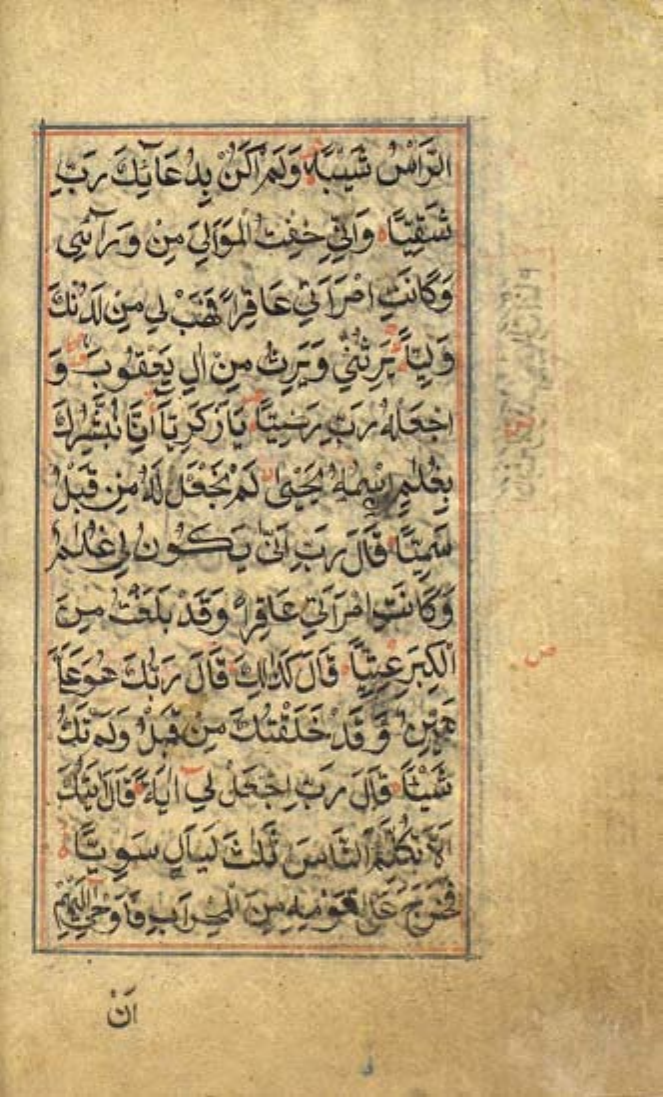 الرَّاْسُ شَيْبًا وَلَمْ اَكُنْ بِدُعَائِكَ رَبِّ
شَقِيًّا وَاِنِّي خِفْتُ الْمَوَالِيَ مِنْ وَرَآئِي
وَكَانَتِ امْرَاَتِي عَاقِرًا فَهَبْ لِي مِنْ لَدُنْكَ
وَلِيًّا يَرِثُنِي وَيَرِثُ مِنْ اٰلِ يَعْقُوبَ وَ
اجْعَلْهُ رَبِّ رَضِيًّا يَا زَكَرِيَّا اِنَّا نُبَشِّرُكَ
بِغُلٰمِ اِسْمُهُ يَحْيٰى لَمْ نَجْعَلْ لَهُ مِنْ قَبْلُ
سَمِيًّا قَالَ رَبِّ اَنّٰى يَكُونُ لِي غُلٰمٌ
وَكَانَتِ امْرَاَتِي عَاقِرًا وَقَدْ بَلَغْتُ مِنَ
الْكِبَرِ عِتِيًّا قَالَ كَذٰلِكَ قَالَ رَبُّكَ هُوَ عَلَيَّ
هَيِّنٌ وَقَدْ خَلَقْتُكَ مِنْ قَبْلُ وَلَمْ تَكُ
شَيْئًا قَالَ رَبِّ اجْعَلْ لِي اٰيَةً قَالَ اٰيَتُكَ
اَلَّا تُكَلِّمَ النَّاسَ ثَلٰثَ لَيَالٍ سَوِيًّا
فَخَرَجَ عَلٰى قَوْمِهِ مِنَ الْمِحْرَابِ فَاَوْحٰى اِلَيْهِمْ
اَنْ
ص